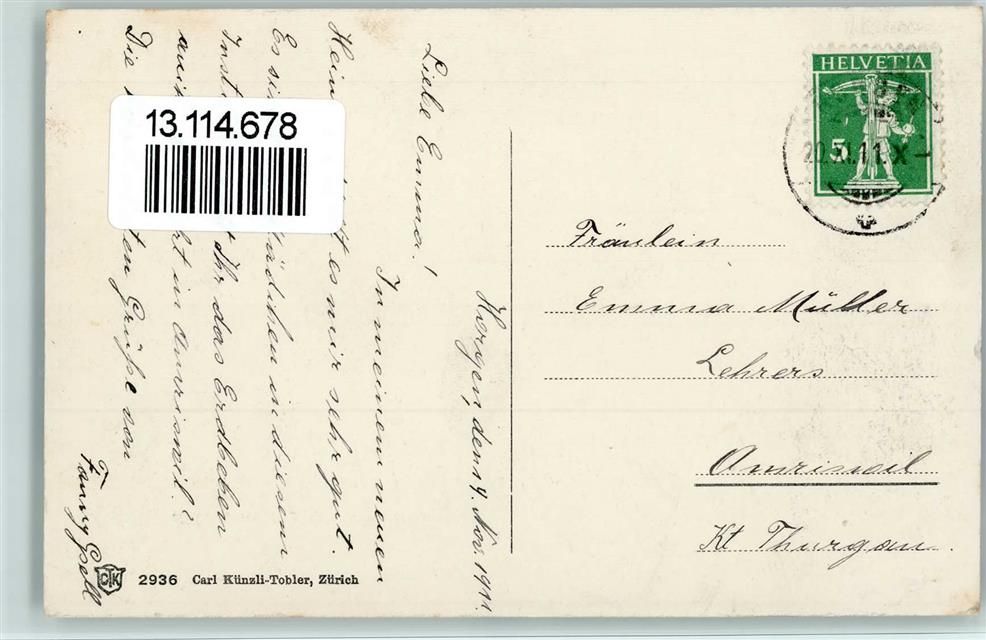 13.114.678
HELVETIA
5
20.XI.11.X-
Horgen, den 14. Nov. 1911.
Liebe Emma!
In meinem neuen
Heim es mir sehr gut.
Es si Mädchen in diesem
Inst Ihr das Erdbeben
auch in Amriswil?
Die ten Grüße von
Fanny
Fräulein
Emma Müller
Lehrers
Amriswil
Kt Thurgau.
CTK 2936 Carl Künzli-Tobler, Zürich